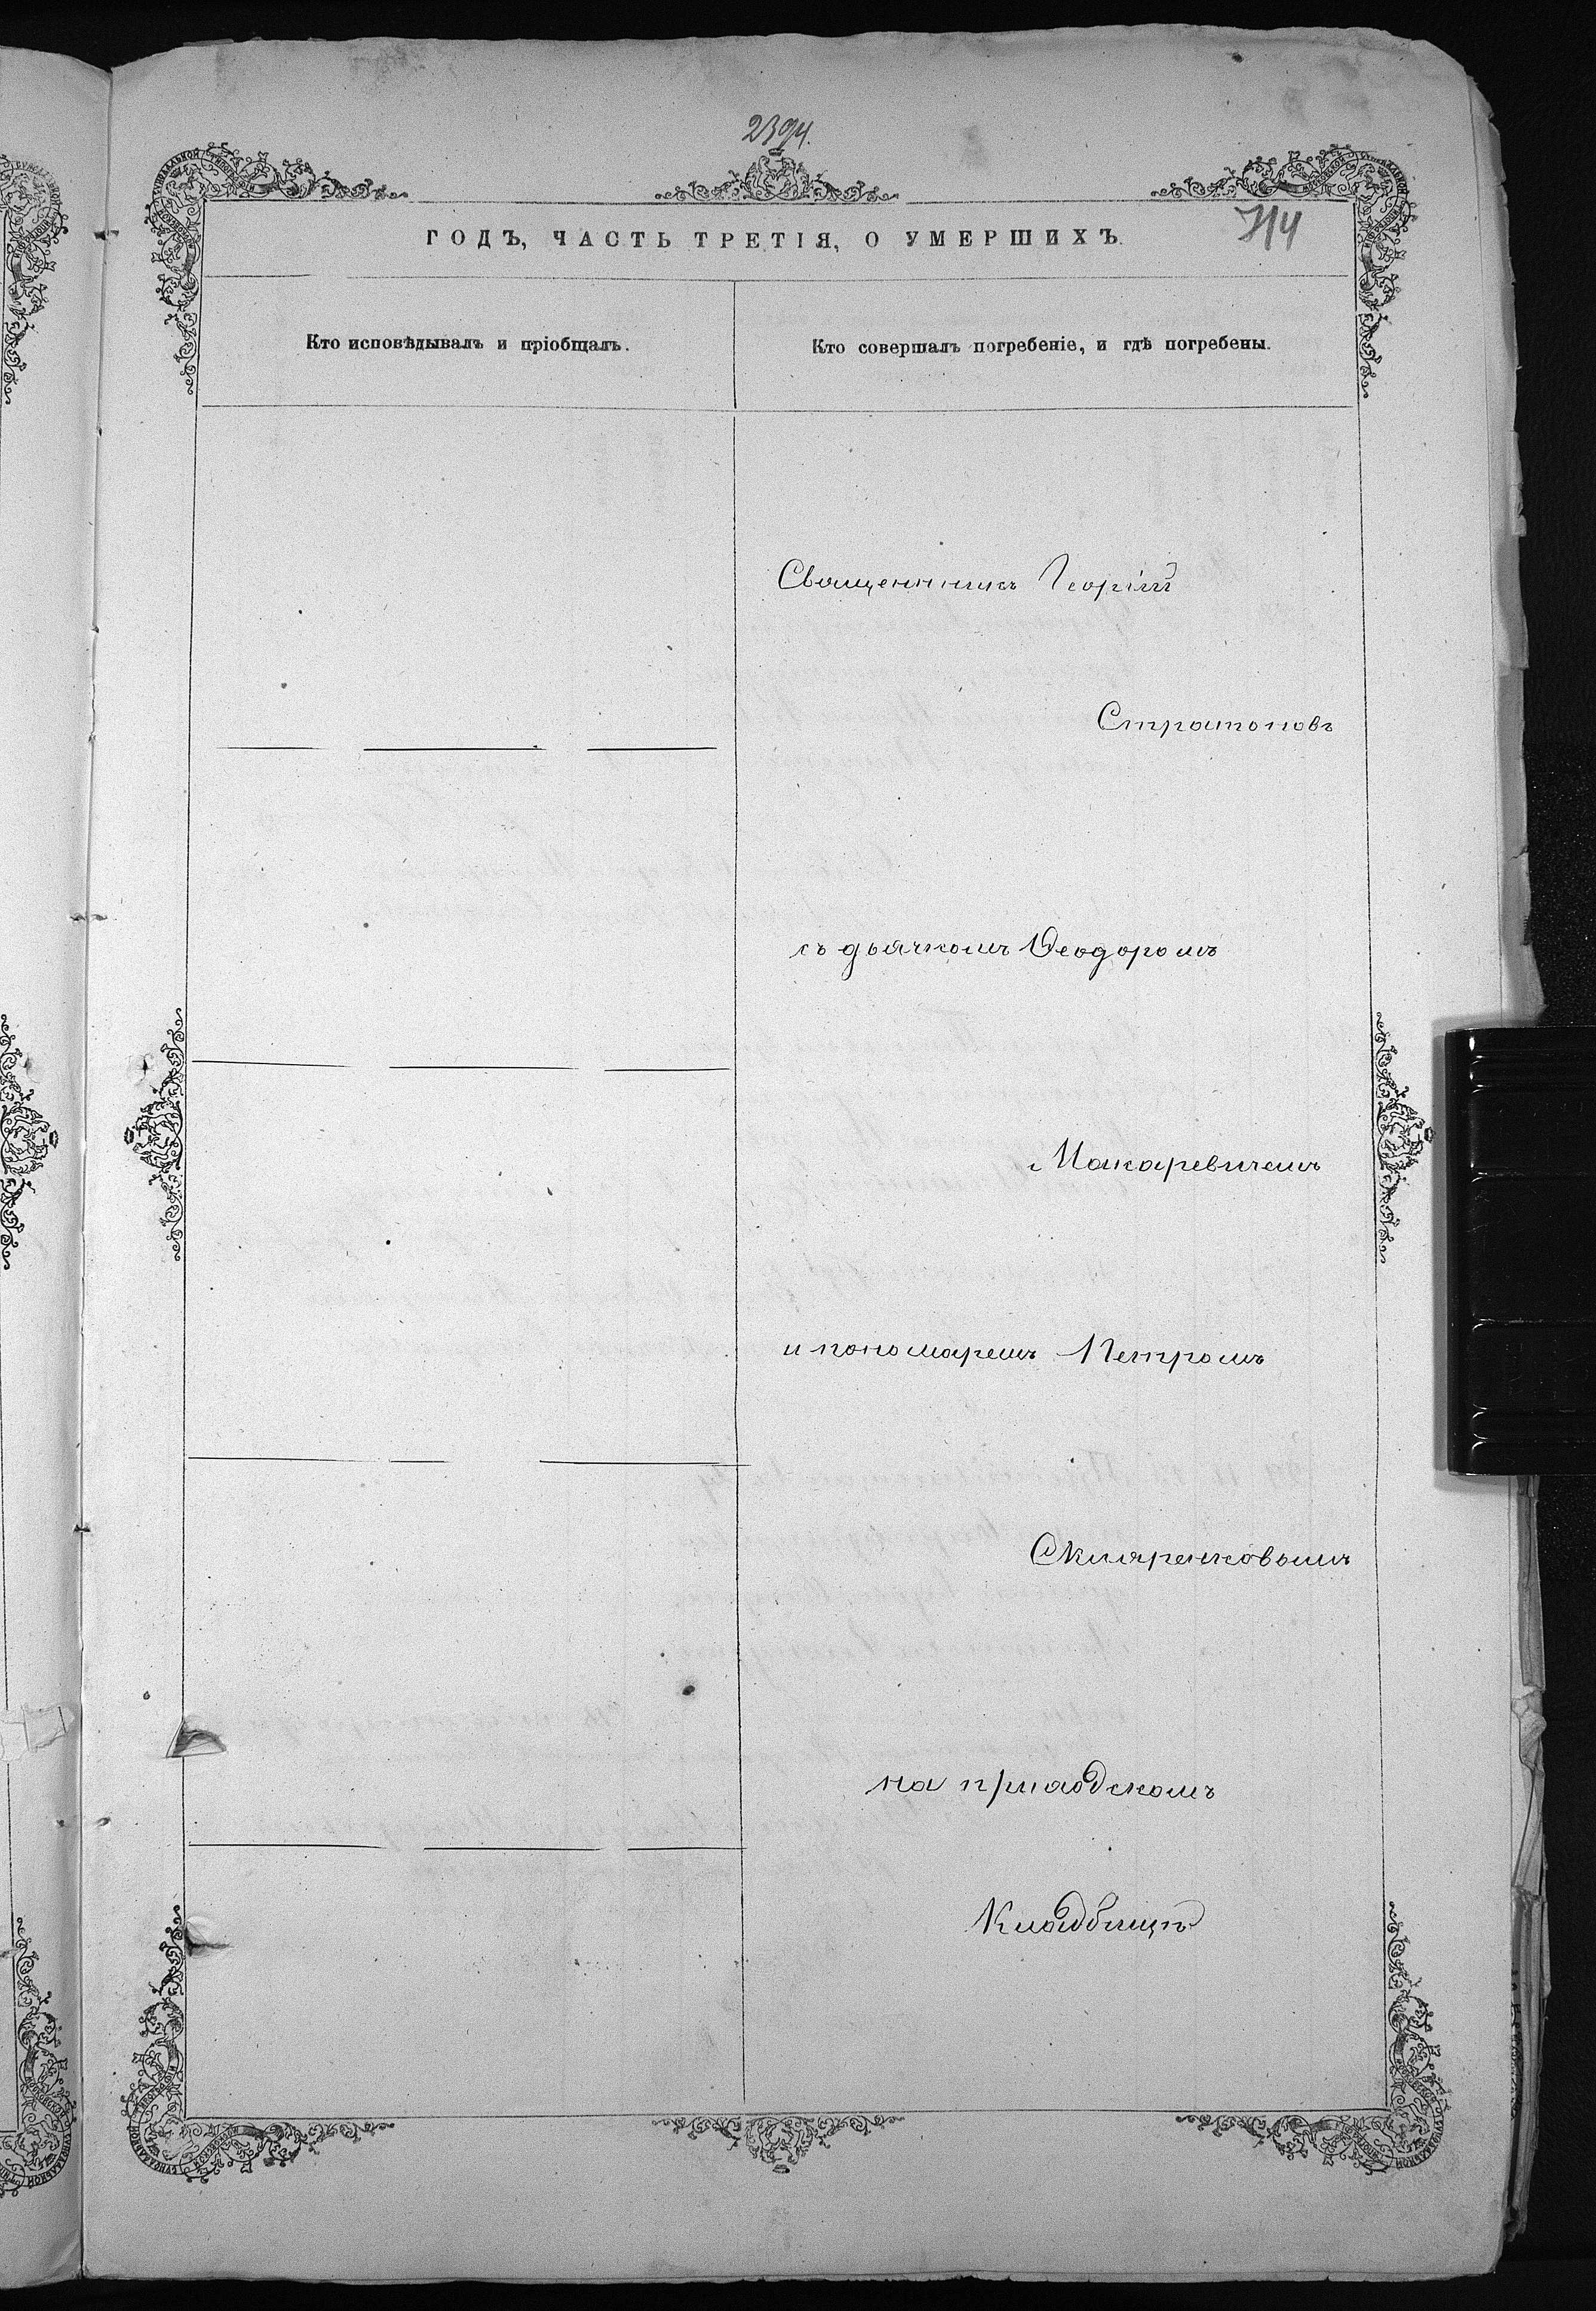 2394.
ГОДЪ, ЧАСТЬ ТРЕТІЯ, О УМЕРШИХЪ.
714
Кто исповѣдывалъ и пріобщалъ.
Кто совершалъ погребеніе, и гдѣ погребены.
Священникъ Георгій
Стратоновъ
съ дьячкомъ Ѳеодоромъ
Макаревичемъ
и пономаремъ Петромъ
Скляренковымъ
на приходскомъ
Кладбищѣ